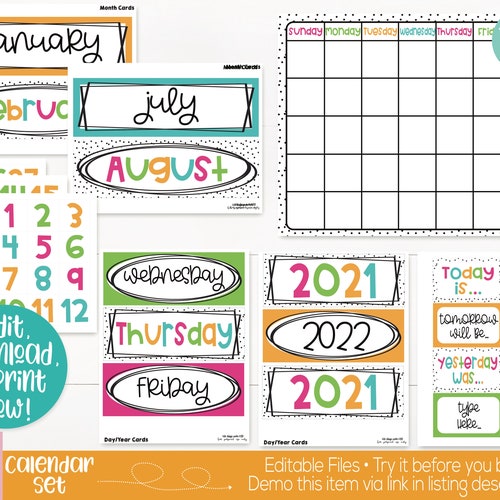 Month Cards
January
Februar
Month Cards
july
August
Sunday Monday Tuesday Wednesday Thursday Frid
14 15
1 2 3
4 5 6
7 8 9
10 11 12
Wednesday
Thursday
Friday
Day/Year Cards
2021
2022
2021
Day/Year Cards
Today
is...
tomorrow
will be...
yesterday
was...
type
here...
dit,
wnload,
print
ow!
calendar
set
Editable Files • Try it before you b
Demo this item via link in listing des